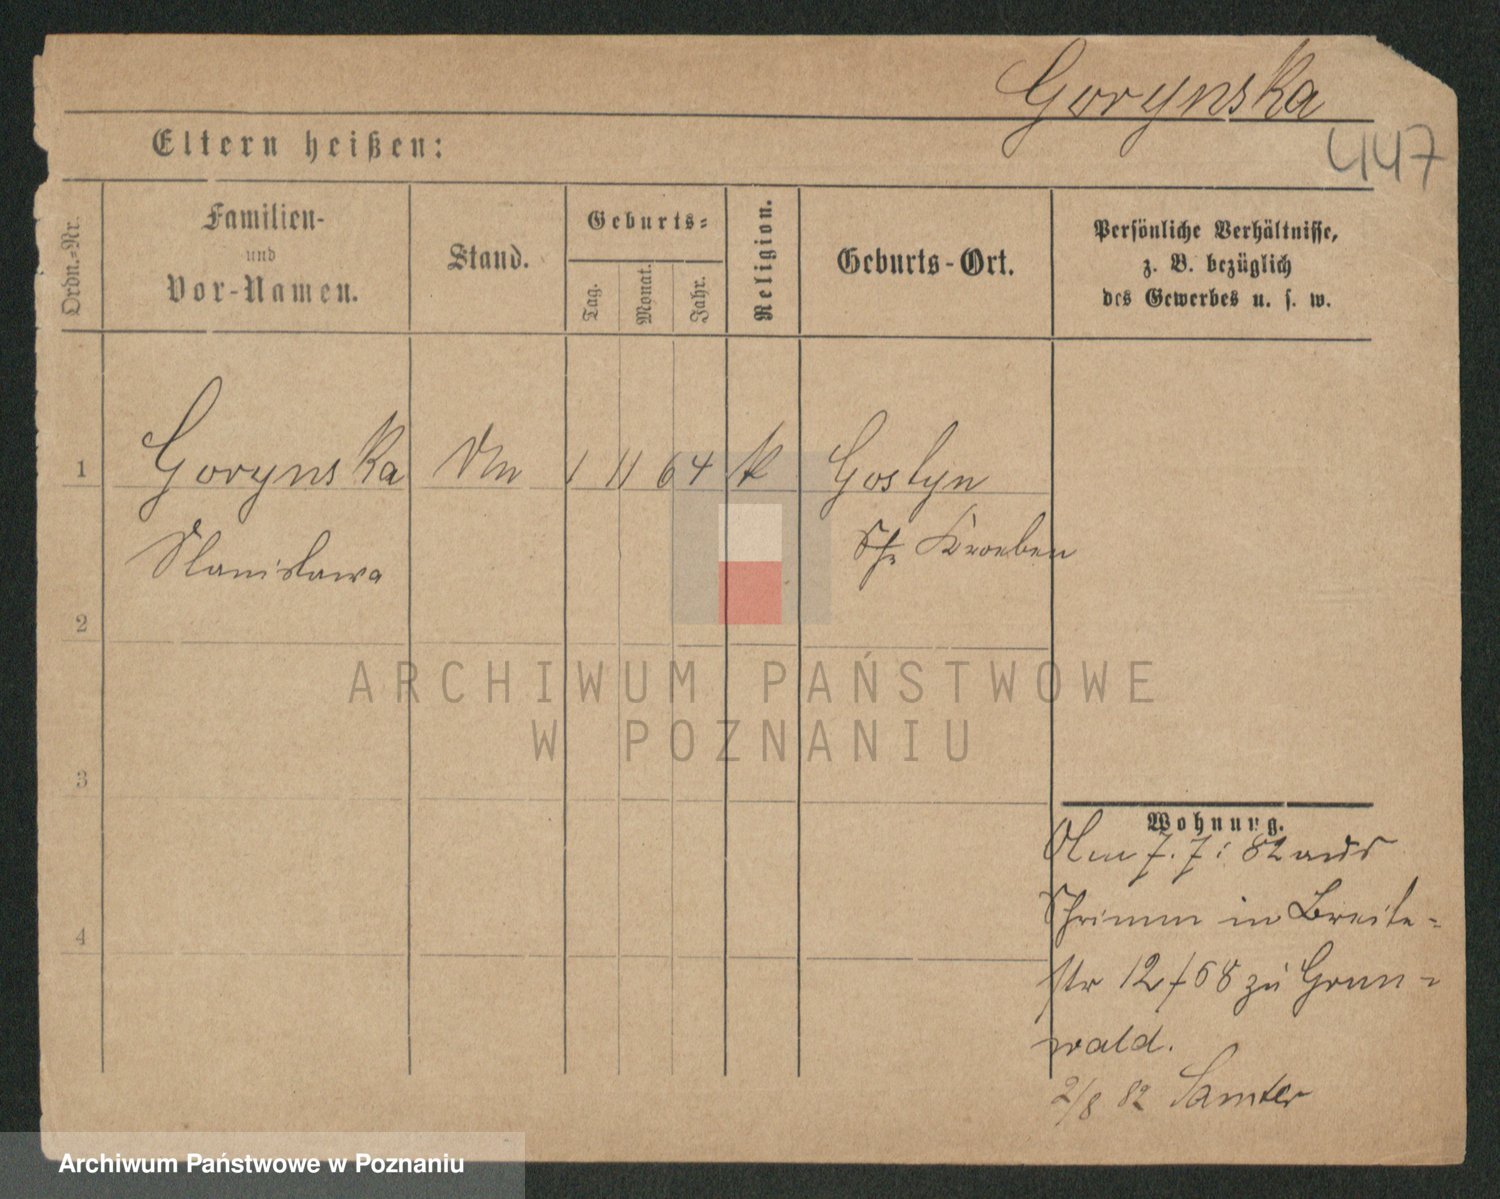 Gorynska
447
Eltern heißen:
Ordn.-Nr.
Familien-
und
Vor-Namen.
Stand.
Geburts-
Tag.
Monat.
Jahr.
Religion.
Geburts-Ort.
Persönliche Verhältnisse,
z. B. bezüglich
des Gewerbes u. s. w.
1 Gorynska 1 11 64 k Gostyn
Stanislawa Kr Kroeben
2
3
4
Wohnung.
Am 7. 7. 82 aus
Schrimm in Breite-
str 12/68 zu Grun-
wald.
2/8 82 Samter
ARCHIWUM PAŃSTWOWE
W POZNANIU
Archiwum Państwowe w Poznaniu